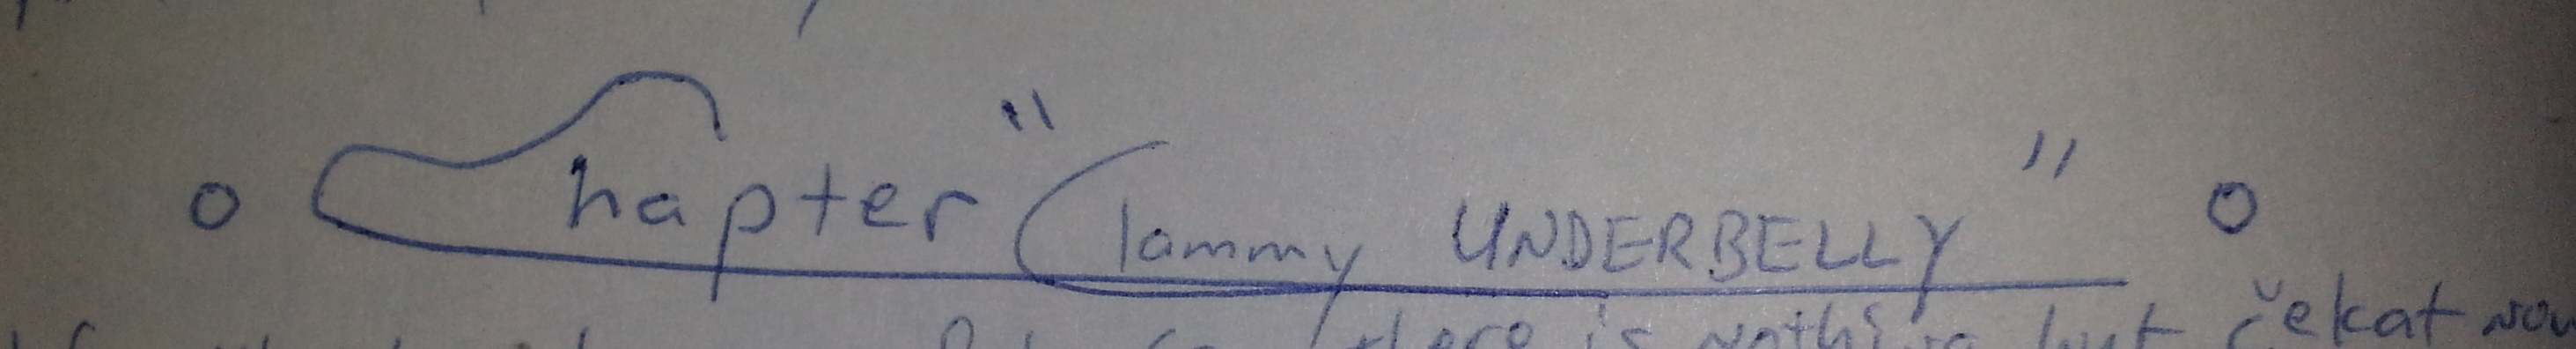 o Chapter "Clammy UNDERBELLY" o
there is nothing but čekat now